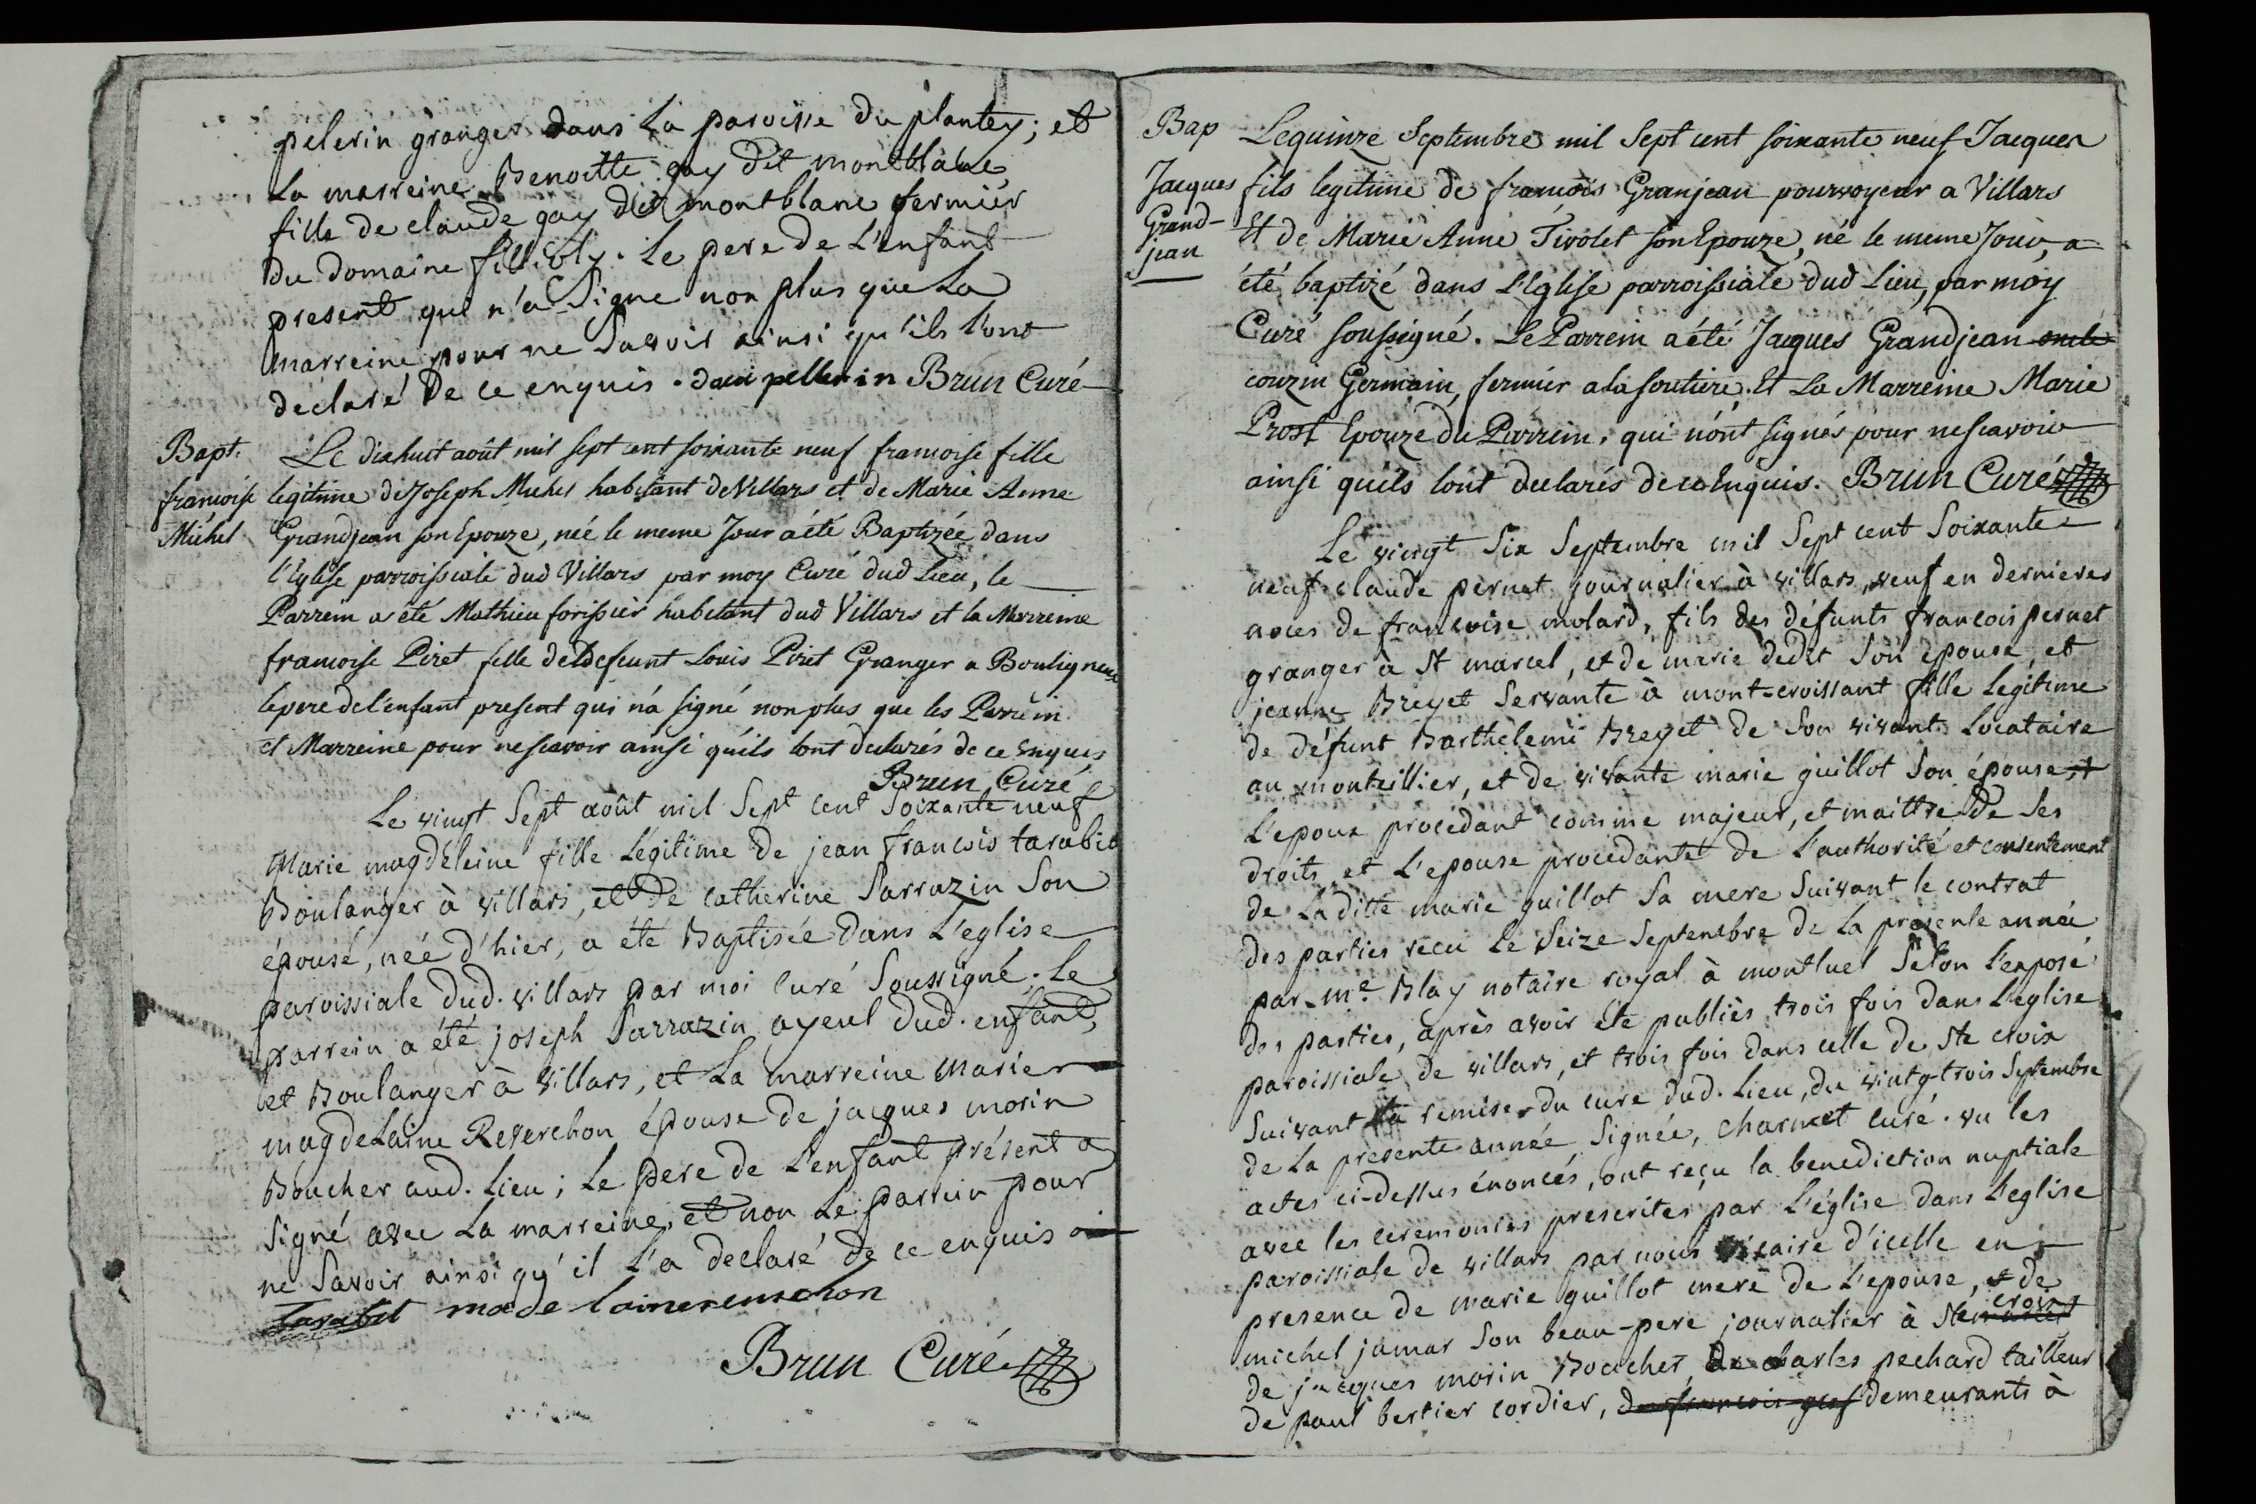 pelerin granger dans La paroisse du plantey; et
La marreine Benoitte gay dit montblanc
fille de claude gay dit montblanc fermiér
du domaine . Le pere de L'enfant
present qui n'a Signé non plus que La
marreine pour ne Savoir ainsi qu'ils L'ont
déclaré de ce enquis. pellerin Brun Curé
Bapt. Le dixhuit août mil sept cent soixante neuf francoise fille
francoise legitime de Joseph Michel habitant de Villars et de Marie Anne
Michel Grandjean son Epouze, née le meme Jour a été Baptizée dans
l'Eglise parroissiale dud Villars par moy Curé dud Lieu, le
Parrein a été Mathieu forissier habitant dud Villars et la Marreine
francoise Piret fille de Defeunt Louis Piret Granger a Bouligneux
le pere de l'enfant present qui n'a signé non plus que les Parrein
et Marreine pour ne scavoir ainsi qu'ils lont declarés de ce Enquis
Brun Curé
Le vingt Sept août mil Sept cent Soixante neuf
Marie magdeleine fille Légitime de jean francois tarabit
Boulanger à villars, et de catherine Sarrazin Son
épouse, née d'hier, a été Baptisée dans L'eglise
paroissiale dud. villars par moi curé Soussigné; Le
parrein a été joseph Sarrazin ayeul dud. enfant,
et Boulanger à Villars, et La marreine Marie
magdeLaine Reverchon épouse de jacques morin
Boucher aud. Lieu; Le pere de L'enfant présent a
Signé avec La marreine, et non Le parrein pour
ne Savoir ainsi qu'il L'a declaré de ce enquis
Tarabit made laine reverchon
Brun Curé
Bap Le quinze Septembre mil Sept cent soixante neuf Jacques
Jacques fils legitime de francois Granjean pourvoyeur a Villars
Grand- Et de Marie Anne Tivolet son Epouze, né le meme Jour, a
jean été baptizé dans L'Eglise parroissiale dud Lieu, par moy
Curé soussigné. Le Parrein a été Jacques Grandjean oncle
couzin Germain, fermier a la soutiere, Et La Marreine Marie
Prost Epouze du Parrein, qui n'ont signés pour ne scavoir
ainsi quils lont declarés de ce Enquis. Brun Curé
Le vingt Six Septembre mil Sept cent Soixante
neuf claude pernet journalier à villars, veuf en dernieres
noces de francoise molard, fils des défunts francois pernet
granger à St marcel, et de marie dedit Son épouse, et
jeanne Breyet Servante à mont-croissant fille Legitime
de défunt Barthèlemi Breyet de Son vivant Locataire
au monteillier, et de vivante marie guillot Son épouse,
L'epoux procédant comme majeur, et maittre de Ses
droits, et L'epouse procédante de L'authorité et consentement
de Laditte marie guillot Sa mere Suivant le contrat
des parties recu Le Seize Septembre de La presente année
par me Blay notaire royal à montluel Selon L'exposé
des parties, après avoir été publiés trois fois dans L'eglise
paroissiale de villars, et trois fois dans celle de Ste croix
Suivant La remise du curé dud. Lieu, du vint-trois Septembre
de La presente année Signée, charmet curé. vu les
actes ci-dessus énoncés, ont reçu la benediction nuptiale
avec les ceremonies prescrites par L'église dans L'eglise
paroissiale de villars par nous vicaire d'icelle en
presence de marie guillot mere de L'epouse, et de
michel jamar Son beau-pere journalier à Ste marcel croix
de jacques morin Boucher, de charles pechard tailleur
de paul bertier cordier, de francois demeurants à